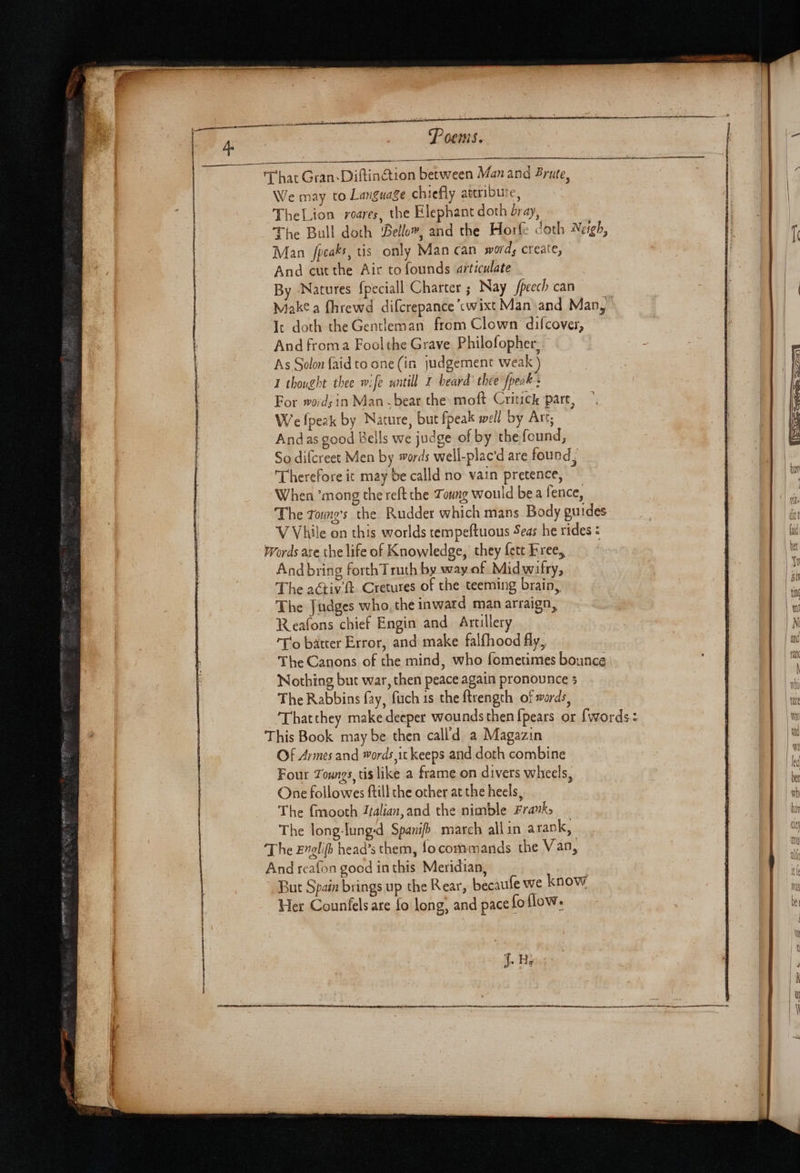 4
Poems.
That Gran-Diſtinction between Man and Brute,
We may to Language chiefly attribute,
The Lion roares, the Elephant doth bray,
The Bull doth Bellow, and the Horſe doth Neigh,
Man ſpeaks, tis only Man can words create,
And cut the Air to ſounds articulate
By Natures ſpeciall Charter; Nay ſpeech can
Make a ſhrewd diſcrepance 'twixt Man and Man,
It doth the Gentleman from Clown diſcover,
And from a Fool the Grave Philoſopher,
As Solon ſaid to one (in judgement weak)
I thought thee wiſe untill I heard thee ſpeak:
For words in Man bear the moſt Critick part,
We ſpeak by Nature, but ſpeak well by Art;
And as good Bells we judge of by the ſound,
So diſcreet Men by words well-plac'd are found,
Therefore it may be calld no vain pretence,
When 'mong the reſt the Toung would be a fence,
The Toung's the Rudder which mans Body guides
VVhile on this worlds tempeſtuous Seas he rides:
Words are the life of Knowledge, they ſett Free,
And bring forth Truth by way of Midwifry,
The activ'ſt Cretures of the teeming brain,
The Judges who the inward man arraign,
Reaſons chief Engin and Artillery
To batter Error, and make falſhood fly,
The Canons of the mind, who ſometimes bounce
Nothing but war, then peace again pronounce;
The Rabbins ſay, ſuch is the ſtrength of words,
That they make deeper wounds then ſpears or ſwords:
This Book may be then call'd a Magazin
Of Armes and words, it keeps and doth combine
Four Toungs, tis like a frame on divers wheels,
One followes ſtill the other at the heels,
The ſmooth Italian, and the nimble Frank,
The long-lung'd Spaniſh march all in a rank,
The Engliſh head's them, ſo commands the Van,
And reaſon good in this Meridian,
But Spain brings up the Rear, becauſe we know
Her Counſels are ſo long, and pace ſo ſlow.
J. H.